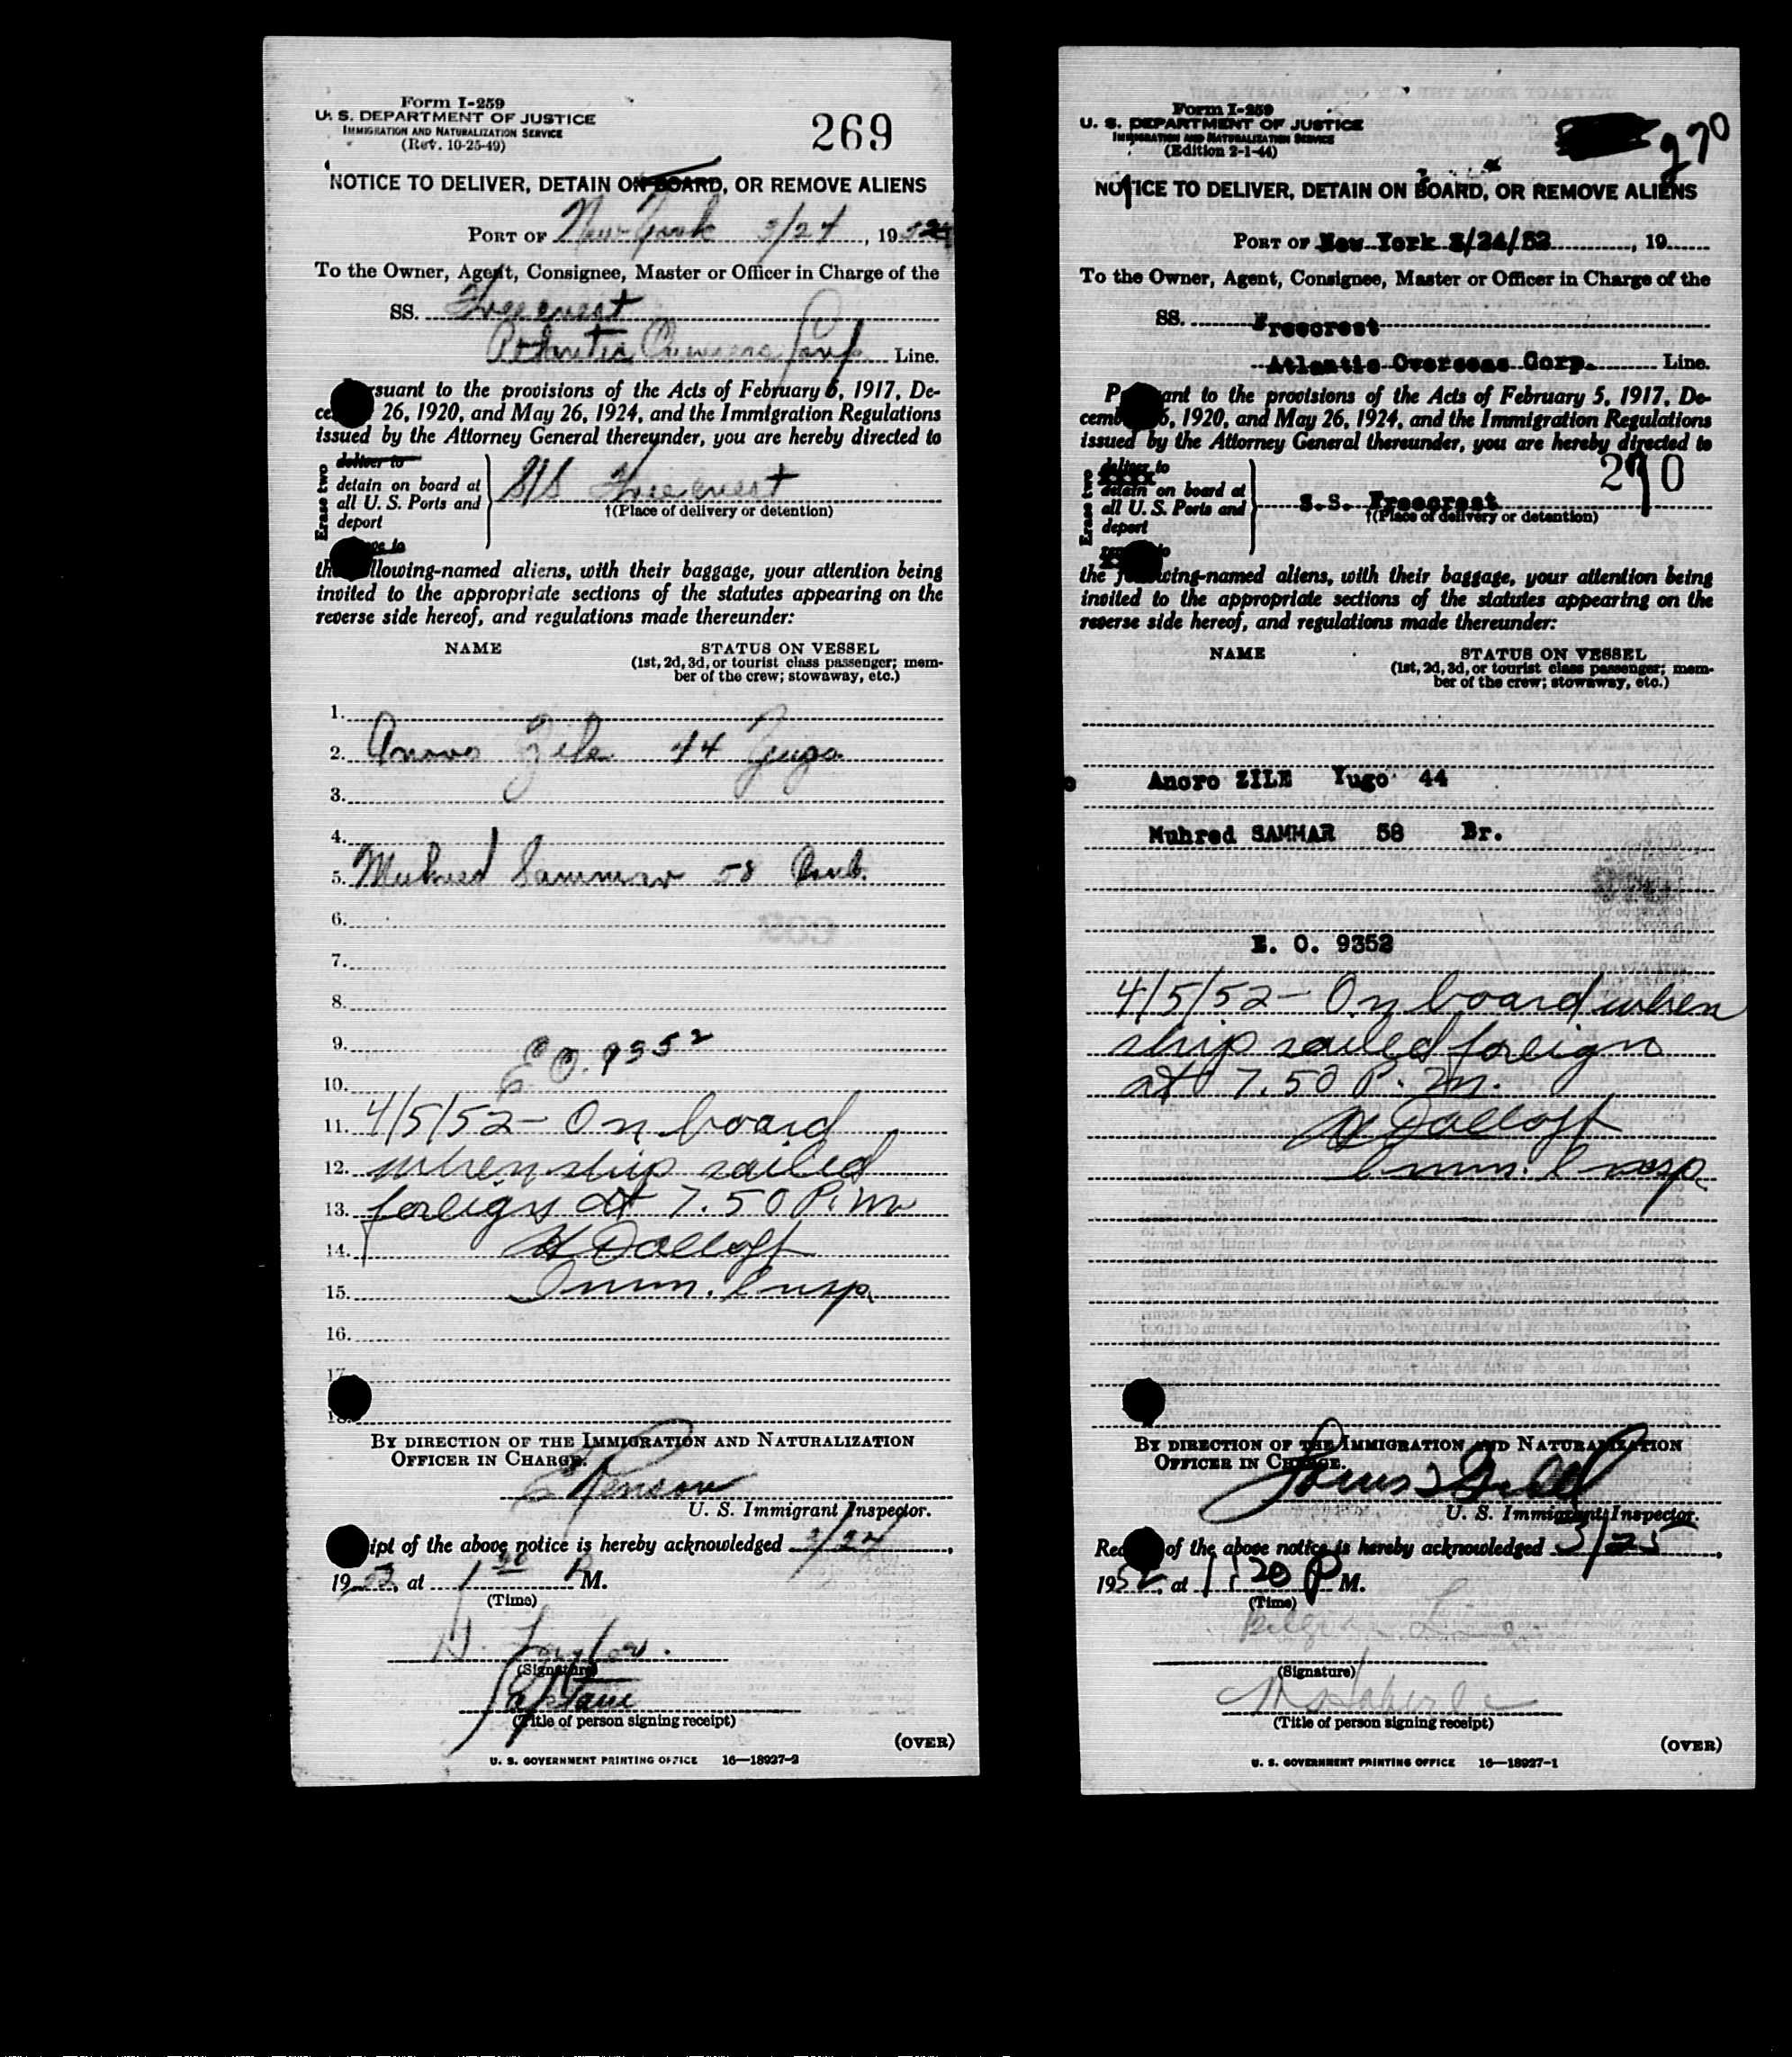 Form I-259
U. S. DEPARTMENT OF JUSTICE
IMMIGRATION AND NATURALIZATION SERVICE
(Rev. 10-25-49)
269
NOTICE TO DELIVER, DETAIN ON BOARD, OR REMOVE ALIENS
PORT OF New York 3/24, 1952
To the Owner, Agent, Consignee, Master or Officer in Charge of the
SS. Freecrest
Atlantic Overseas Corp. Line.
suant to the provisions of the Acts of February 5, 1917, De-
ce 26, 1920, and May 26, 1924, and the Immigration Regulations
issued by the Attorney General thereunder, you are hereby directed to
Erase two
deliver to
detain on board at
all U. S. Ports and
deport
S/S Freecrest
†(Place of delivery or detention)
th llowing-named aliens, with their baggage, your attention being
invited to the appropriate sections of the statutes appearing on the
reverse side hereof, and regulations made thereunder:
NAME STATUS ON VESSEL
(1st, 2d, 3d, or tourist class passenger; mem-
ber of the crew; stowaway, etc.)
1.
2. Anoro Zile 44 Yugo
3.
4.
5. Muhred Sammar 58
6.
7.
8.
9. E.O. 9352
10.
11. 4/5/52 - On board
12. when ship sailed
13. foreign at 7.50 P.M
14.
15. Imm. Insp.
16.
17.
18.
BY DIRECTION OF THE IMMIGRATION AND NATURALIZATION
OFFICER IN CHARGE.
U. S. Immigrant Inspector.
ipt of the above notice is hereby acknowledged 3/24,
1952, at 1 30 P M.
(Time)
H. Taylor.
(Signature)
Captain
(Title of person signing receipt)
(OVER)
U. S. GOVERNMENT PRINTING OFFICE 16—18927-2
Form I-259
U. S. DEPARTMENT OF JUSTICE
IMMIGRATION AND NATURALIZATION SERVICE
(Edition 2-1-44)
270
NOTICE TO DELIVER, DETAIN ON BOARD, OR REMOVE ALIENS
PORT OF New York 3/24/52, 19
To the Owner, Agent, Consignee, Master or Officer in Charge of the
SS. Freecrest
Atlantic Overseas Corp. Line.
P ant to the provisions of the Acts of February 5, 1917, De-
cemb 6, 1920, and May 26, 1924, and the Immigration Regulations
issued by the Attorney General thereunder, you are hereby directed to
270
Erase two
deliver to
detain on board at
all U. S. Ports and
deport
S.S. Freecrest
†(Place of delivery or detention)
the f wing-named aliens, with their baggage, your attention being
invited to the appropriate sections of the statutes appearing on the
reverse side hereof, and regulations made thereunder:
NAME STATUS ON VESSEL
(1st, 2d, 3d, or tourist class passenger; mem-
ber of the crew; stowaway, etc.)
Anoro ZILE Yugo 44
Muhred SAMMAR 58 Br.
E. O. 9352
4/5/52 - On board when
ship sailed foreign
at 7.50 P.M.
Imm. Insp.
BY DIRECTION OF THE IMMIGRATION AND NATURALIZATION
OFFICER IN CHARGE.
U. S. Immigrant Inspector.
Rec of the above notice is hereby acknowledged 3/25,
1952, at 1:20 P M.
(Time)
(Signature)
(Title of person signing receipt)
(OVER)
U. S. GOVERNMENT PRINTING OFFICE 16—18927-1